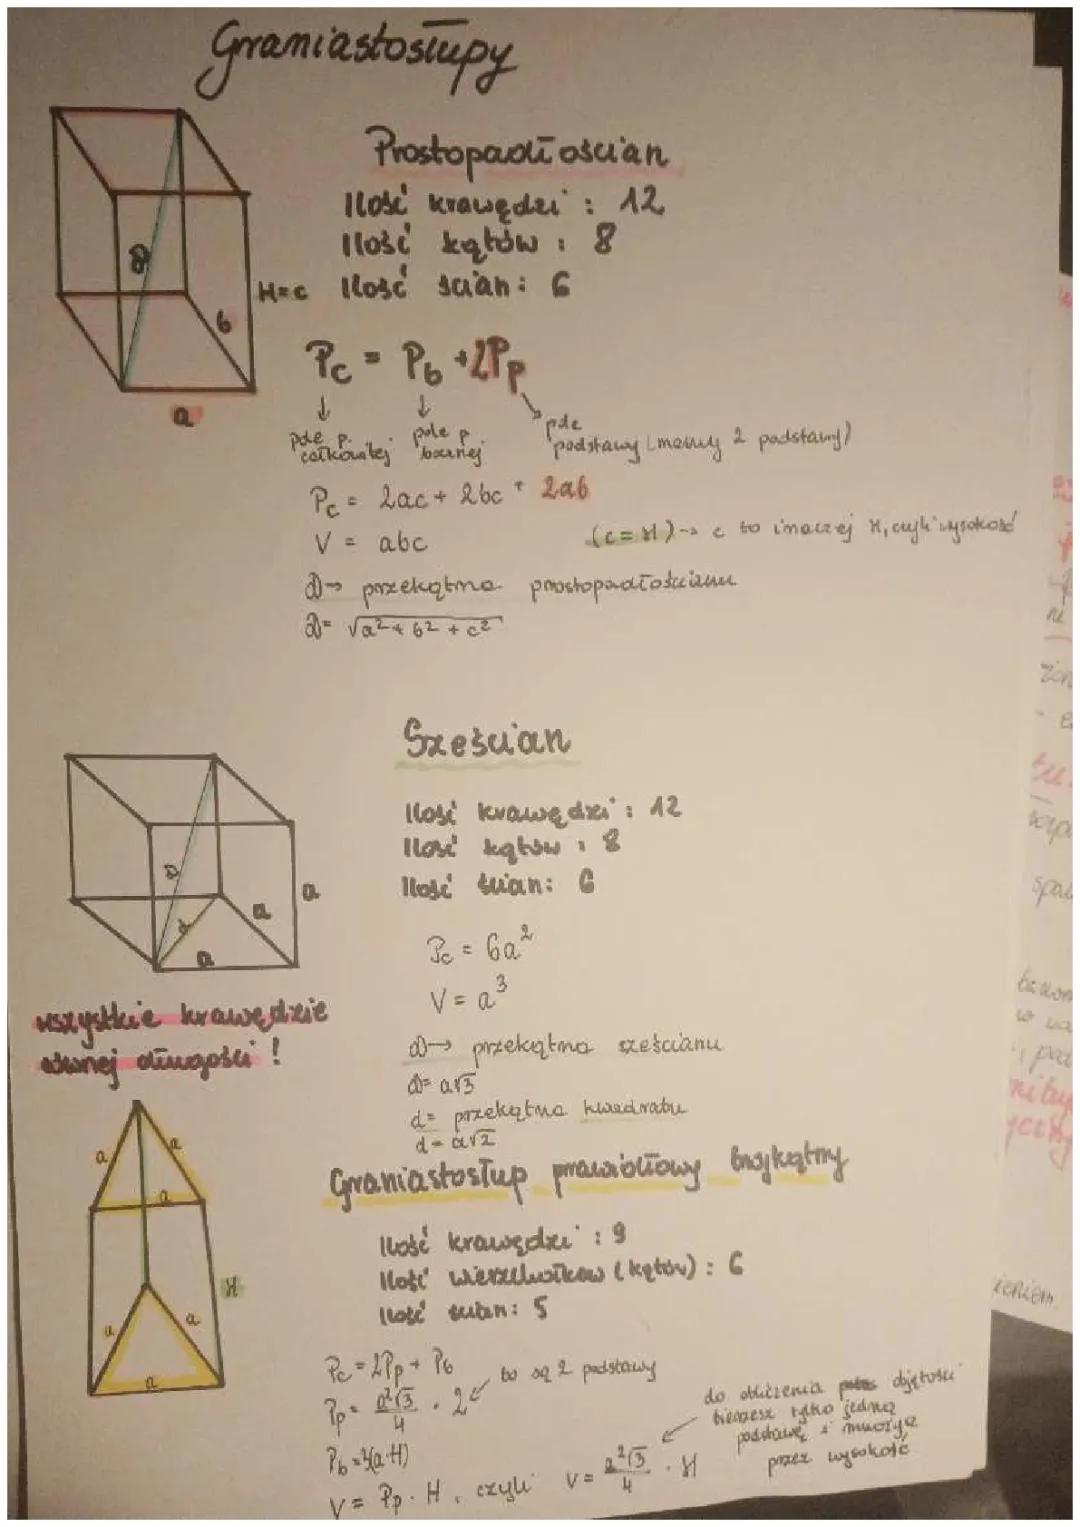 Graniastosłupy
Prostopadłościan
Ilość krawędzi : 12
Ilość kątów : 8
Ilość ścian : 6
D
H=c
b
a
Pc = Pb + 2Pp
pole p. całkowitej
pole p. bocznej
pole podstawy (mamy 2 podstawy)
Pc = 2ac + 2bc + 2ab
V = abc
(c = H) → c to inaczej H, czyli wysokość
D → przekątna prostopadłościanu
D = √a²+b²+c²
Sześcian
Ilość krawędzi : 12
Ilość kątów : 8
Ilość ścian : 6
D
d
a
a
a
Pc = 6a²
V = a³
wszystkie krawędzie
równej długości !
D → przekątna sześcianu
D = a√3
d = przekątna kwadratu
d = a√2
Graniastosłup prawidłowy trójkątny
Ilość krawędzi : 9
Ilość wierzchołków (kątów) : 6
Ilość ścian : 5
a
a
a
H
a
a
a
Pc = 2Pp + Pb
Pp = a²√3/4 · 2 bo są 2 podstawy
Pb = 3(a·H)
V = Pp · H, czyli V = a²√3/4 · H
do obliczenia objętości
bierzesz tylko jedną
podstawę i mnożysz
przez wysokość